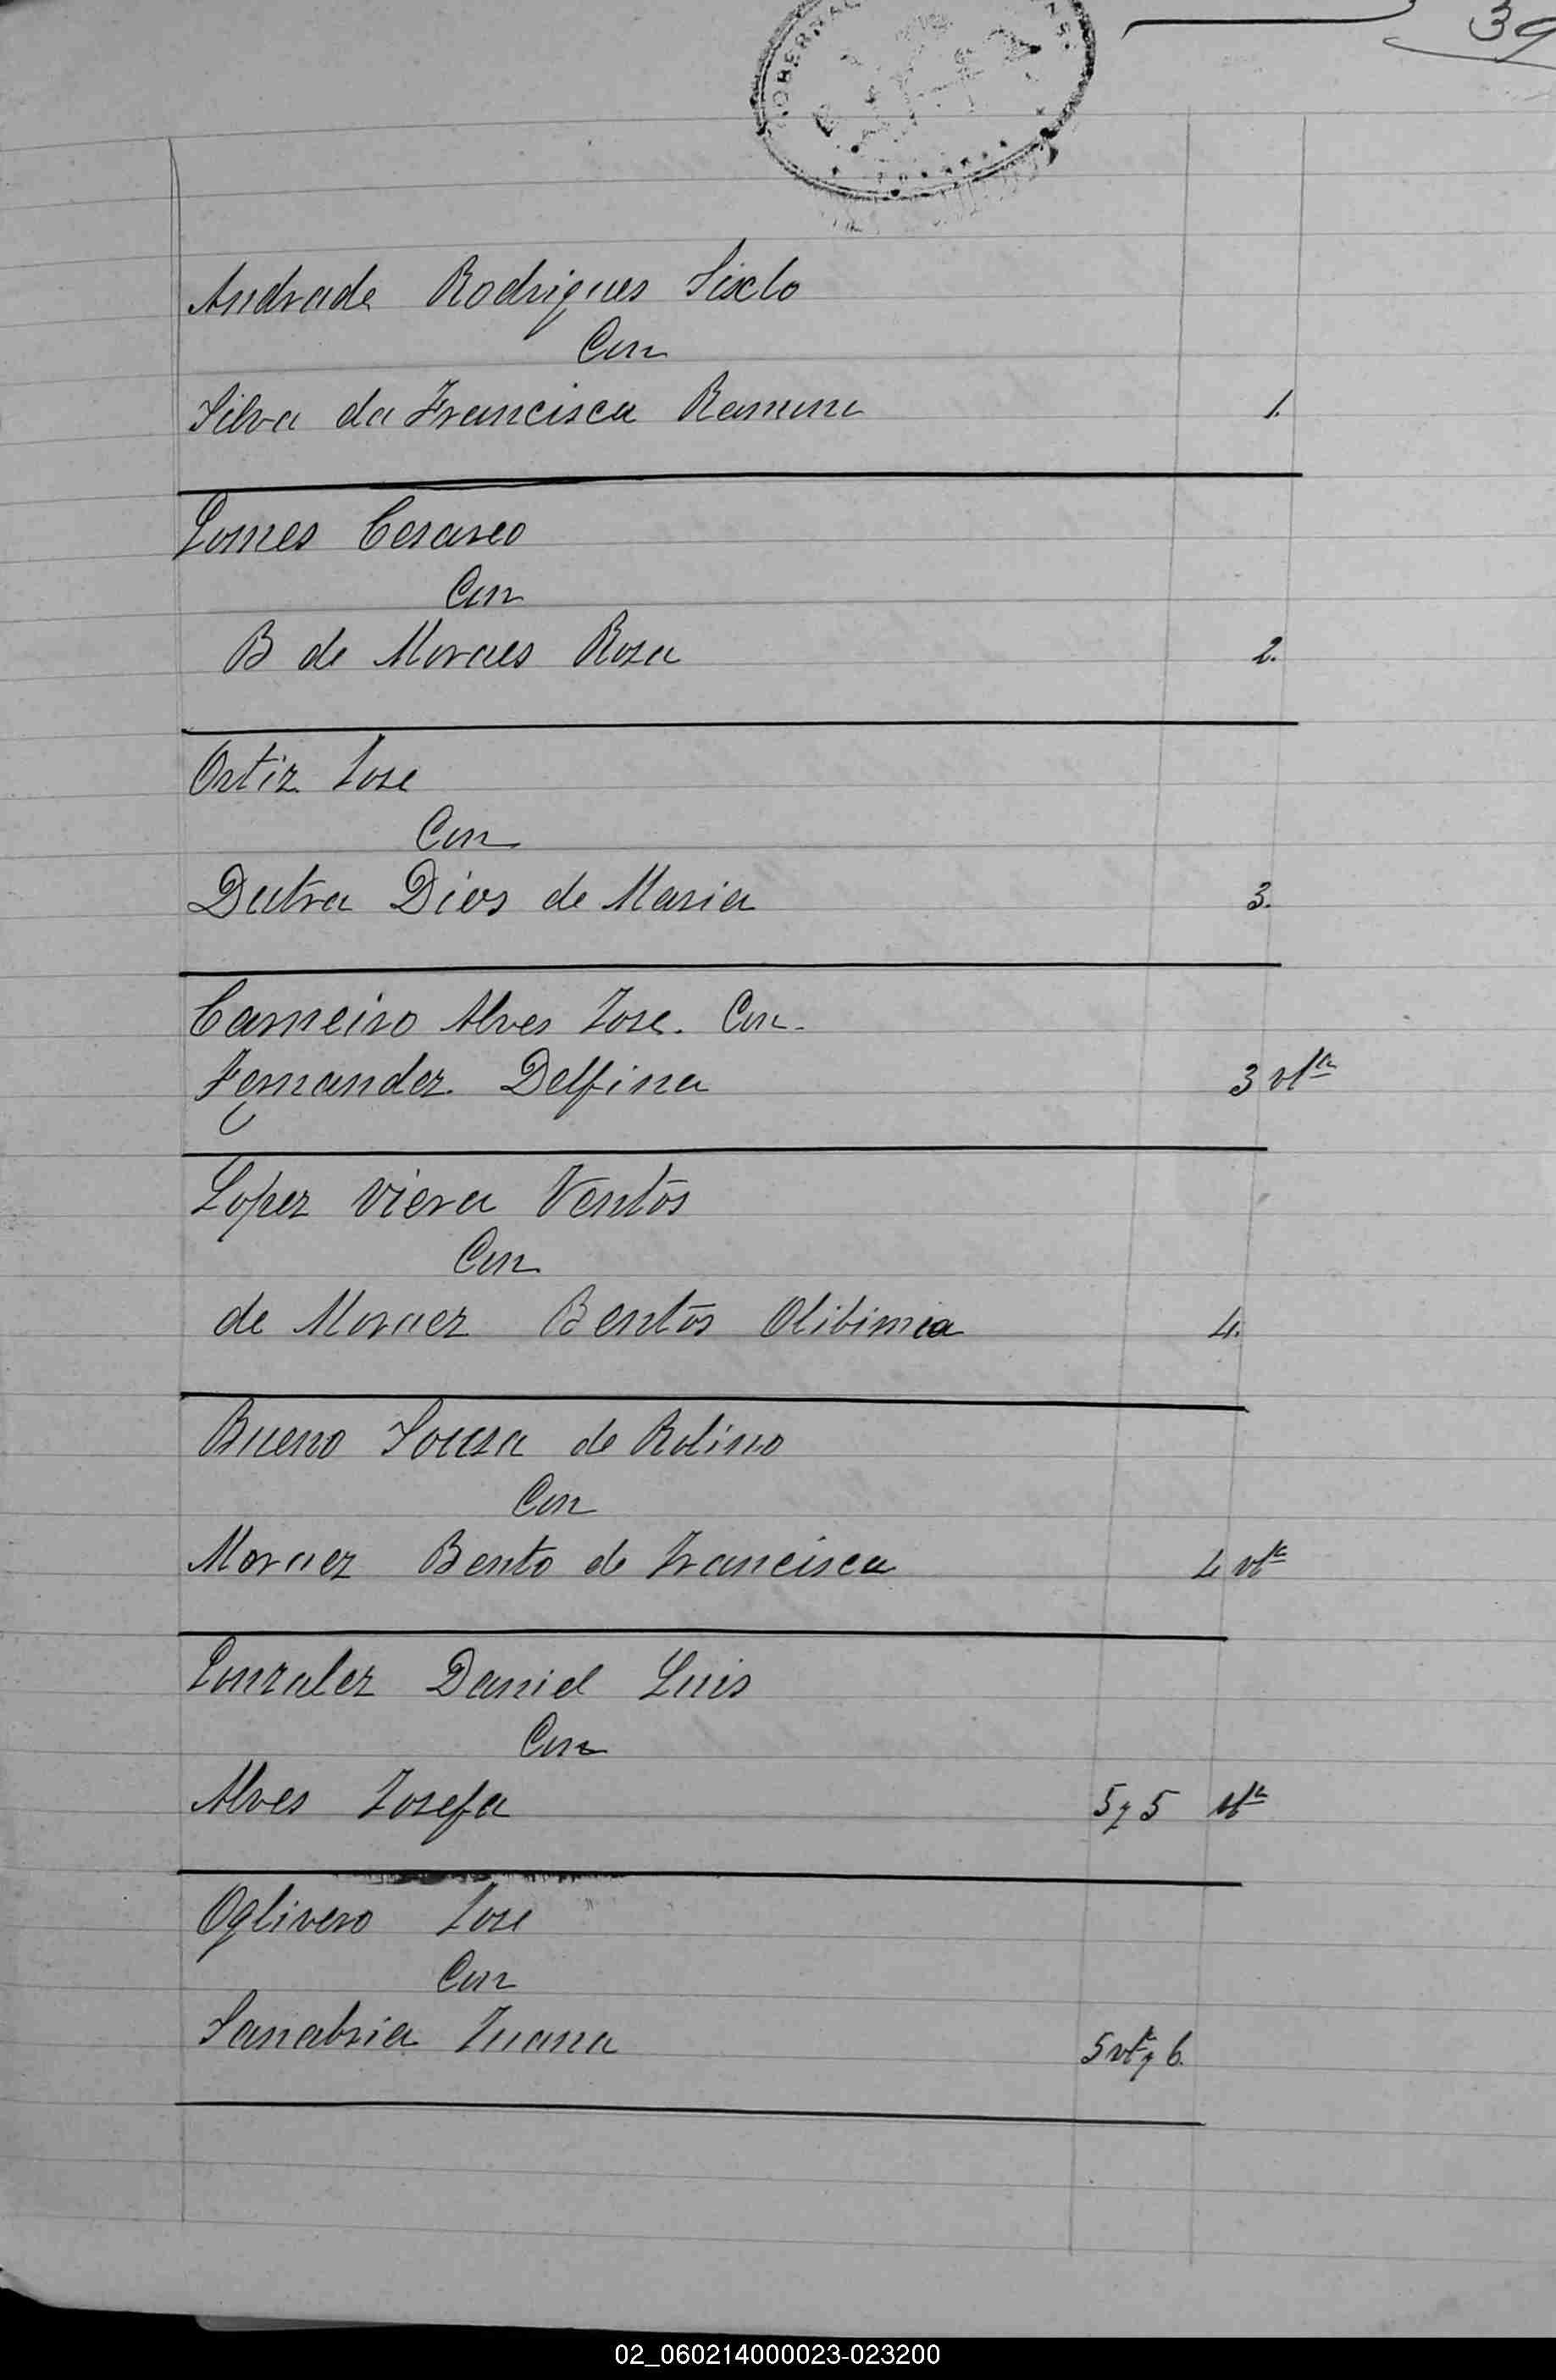 39
Andrade Rodrigues Sixto
Con
Silva da Francisca Ramona 1.
Gomes Cesareo
Con
B de Moraes Rosa 2.
Ortiz Jose
Con
Dutra Dios de Maria 3.
Carneiro Alves Jose. Con.
Fernandez Delfina 3 vlta
Lopez Viera Ventos
Con
de Moraez Bentos Olibimia 4.
Bueno Sousa de Rolino
Con
Moraez Bento de Francisca 4 vta
Gonzalez Daniel Luis
Con
Alves Josefa 5 y 5 vta
Oglivero Jose
Con
Sanabria Juana 5 vta y 6.
02_060214000023-023200